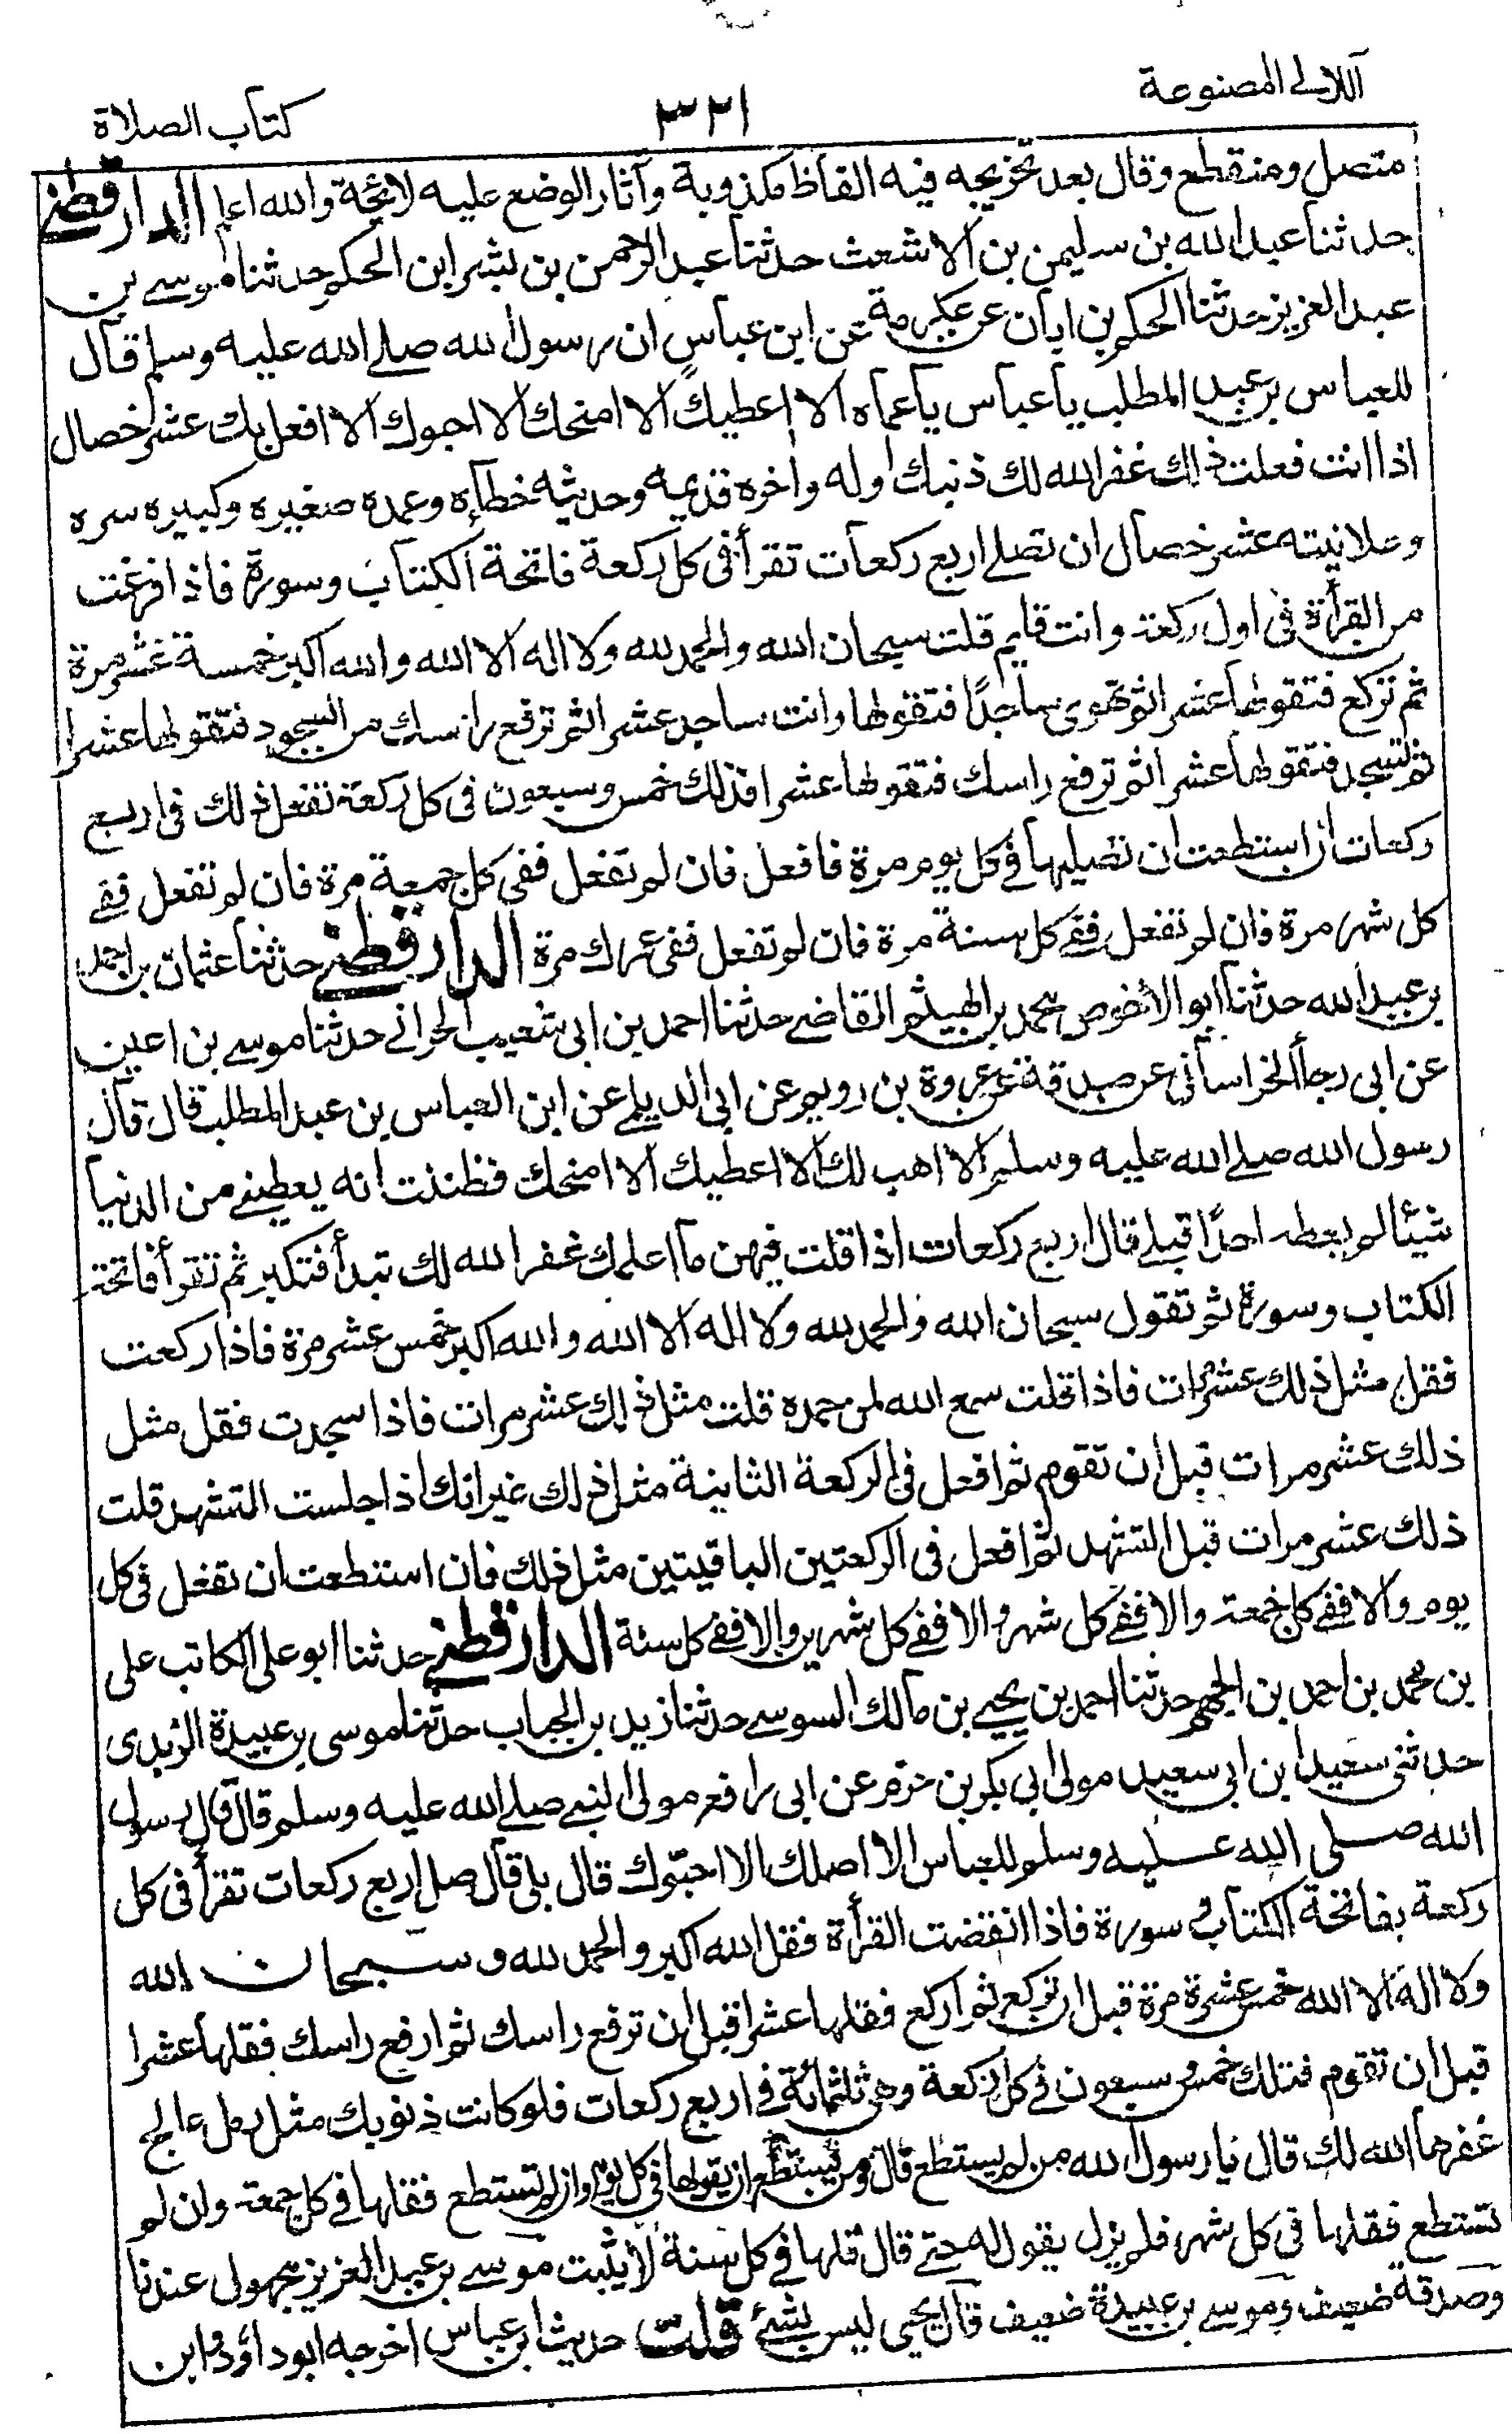 اللآلى المصنوعة
٣٢١
كتاب الصلاة
متصل ومنقطع وقال بعد تخريجه فيه الفاظ مكذوبة وآثار الوضع عليه لائحة والله اعلم الدارقطنے
حدثنا عبد الله بن سليمن بن الاشعث حدثنا عبد الرحمن بن بشر ابن الحكم حدثنا موسے بن
عبد العزيز حدثنا الحكم بن ابان عن عكرمة عن ابن عباس ان رسول الله صلے الله عليه وسلم قال
للعباس بن عبد المطلب يا عباس يا عماه الا اعطيك الا امنحك الا احبوك الا افعل بك عشر خصال
اذا انت فعلت ذلك غفر الله لك ذنبك اوله واخره قديمه وحديثه خطأه وعمده صغيره وكبيره سره
وعلانيته عشر خصال ان تصلے اربع ركعات تقرأ فى كل ركعة فاتحة الكتاب وسورة فاذا فرغت
من القرأة فى اول ركعة وانت قايم قلت سبحان الله والحمد لله ولا اله الا الله والله اكبر خمسة عشر مرة
ثم تركع فتقولها عشرا ثم تهوى ساجدًا فتقولها وانت ساجد عشرا ثم ترفع راسك من السجود فتقولها عشرا
ثم تسجد فتقولها عشرا ثم ترفع راسك فتقولها عشرا فذلك خمس وسبعون فى كل ركعة تفعل ذلك فى اربع
ركعات ان استطعت ان تصليها فى كل يوم مرة فافعل فان لم تفعل ففى كل جمعة مرة فان لم تفعل ففے
كل شهر مرة فان لم تفعل ففے كل سنة مرة فان لم تفعل ففى عمرك مرة الدارقطنے حدثنا عثمان بن احمد
بن عبد الله حدثنا ابو الاخوص محمد بن الهيثم القاضے حدثنا احمد بن ابى شعيب الحرانے حدثنا موسے بن اعين
عن ابى رجأ الخراسانى عن صدقة عن عروة بن رويم عن ابى الديلمے عن ابن العباس بن عبد المطلب قال قال
رسول الله صلے الله عليه وسلم الا اهب لك الا اعطيك الا امنحك فظننت انه يعطينے من الدنيا
شيئا لم يعطه احدًا قبلے قال اربع ركعات اذا قلت فيهن ما اعلمك غفر الله لك تبدأ فتكبر ثم تقرأ فاتحة
الكتاب وسورة ثم تقول سبحان الله والحمد لله ولا اله الا الله والله اكبر خمس عشر مرة فاذا ركعت
فقل مثل ذلك عشر مرات فاذا قلت سمع الله لمن حمده قلت مثل ذلك عشر مرات فاذا سجدت فقل مثل
ذلك عشر مرات قبل ان تقوم ثم افعل فى الركعة الثانية مثل ذلك غير انك اذا جلست التشهد قلت
ذلك عشر مرات قبل التشهد ثم افعل فى الركعتين الباقيتين مثل ذلك فان استطعت ان تفعل فى كل
يوم والا ففے كل جمعة والا ففے كل شهر والا ففے كل شهرين والا ففے كل سنة الدارقطنے حدثنا ابو على الكاتب على
بن محمد بن احمد بن الجهم حدثنا احمد بن يحيے بن مالك السوسے حدثنا زيد بن الحباب حدثنا موسى بن عبيدة الزبدى
حدثنى سعيد ابن ابى سعيد مولى ابى بكر بن حزم عن ابى رافع مولى النبے صلے الله عليه وسلم قال قال رسول
الله صلى الله عليه وسلم للعباس الا اصلك الا احبوك قال بلى قال صل اربع ركعات تقرأ فى كل
ركعة بفاتحة الكتاب وسورة فاذا انقضت القرأة فقل الله اكبر والحمد لله وسبحان الله
ولا اله الا الله خمس عشرة مرة قبل ان تركع ثم اركع فقلها عشرا قبل ان ترفع راسك ثم ارفع راسك فقلها عشرا
قبل ان تقوم فتلك خمس وسبعون فے كل ركعة وهى ثلثمائة فے اربع ركعات فلو كانت ذنوبك مثل رمل عالج
غفرها الله لك قال يا رسول الله من لم يستطع قال ومن يستطع ان يقولها فى كل يوم وان لم تستطع فقلها فے كل جمعة وان لم
تستطع فقلها فى كل شهر فلم يزل يقول له حتے قال قلها فے كل سنة لا يثبت موسے بن عبد العزيز مجهول عندنا
وصدقة ضعيف وموسے بن عبيدة ضعيف قال يحيى ليس بشئ قلت حديث ابن عباس اخرجه ابو داؤد وابن